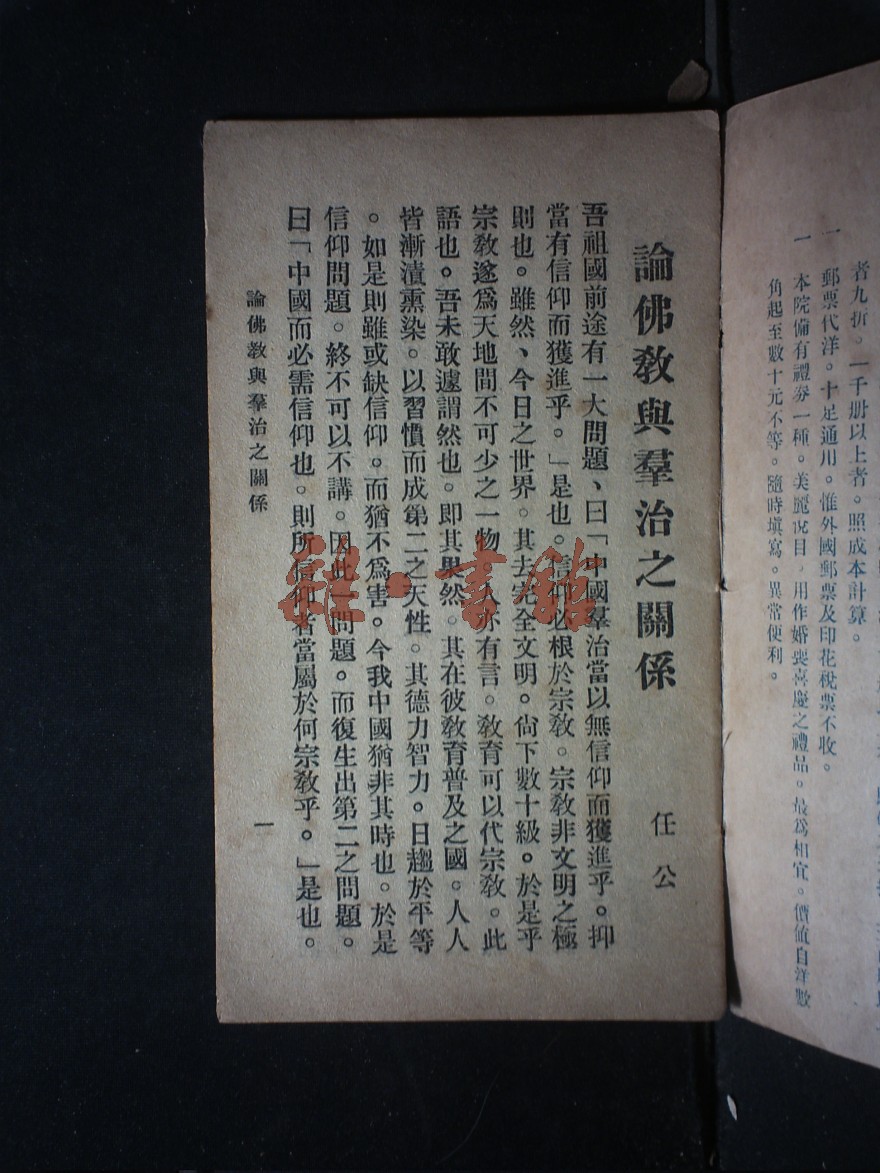 者九折。一千册以上者。照成本計算。
一 郵票代洋。十足通用。惟外國郵票及印花稅票不收。
一 本院備有禮券一種。美麗悅目。用作婚喪喜慶之禮品。最爲相宜。價值自洋數
角起至數十元不等。隨時填寫。異常便利。
論佛教與羣治之關係
任公
吾祖國前途有一大問題、曰「中國羣治當以無信仰而獲進乎。抑
當有信仰而獲進乎。」是也。信仰必根於宗教。宗教非文明之極
則也。雖然、今日之世界。其去完全文明。尙下數十級。於是乎
宗教遂爲天地間不可少之一物。人亦有言。教育可以代宗教。此
語也。吾未敢遽謂然也。即其果然。其在彼教育普及之國。人人
皆漸漬熏染。以習慣而成第二之天性。其德力智力。日趨於平等
。如是則雖或缺信仰。而猶不爲害。今我中國猶非其時也。於是
信仰問題。終不可以不講。因此一問題。而復生出第二之問題。
曰「中國而必需信仰也。則所信仰者當屬於何宗教乎。」是也。
論佛教與羣治之關係
一
雜·書館